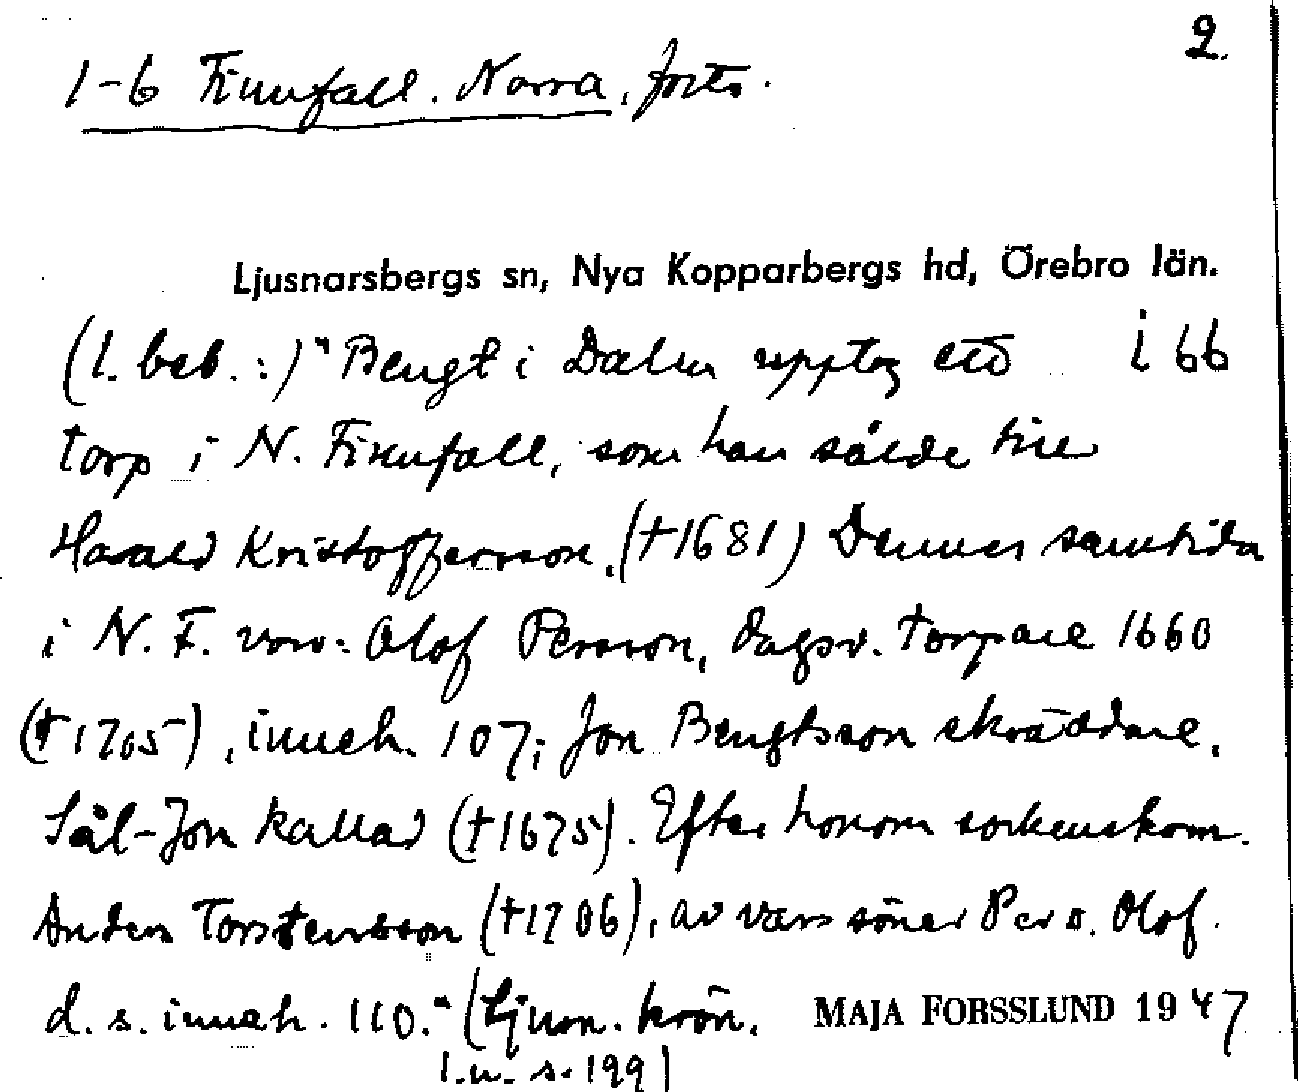 2.
1-6 Finnfall. Norra, forts.
Ljusnarsbergs sn, Nya Kopparbergs hd, Örebro län.
(1. beb. :) "Bengt i Dalen upptog ett i 66
torp i N. Finnfall, som han sålde till
Harald Kristoffersson, (†1681) Dennes samtida
i N. F. voro: Olof Persson, dagsv. torpare 1660
(†1705), inneh. 107; Jon Bengtsson skräddare,
Sål-Jon kallad (†1675). Efter honom sockenskom.
Anders Torstensson (†1706), av vars söner Per o. Olof
d. s. inneh. 110." (Ljusn. krön.
MAJA FORSSLUND 1947
l.u. s. 199)